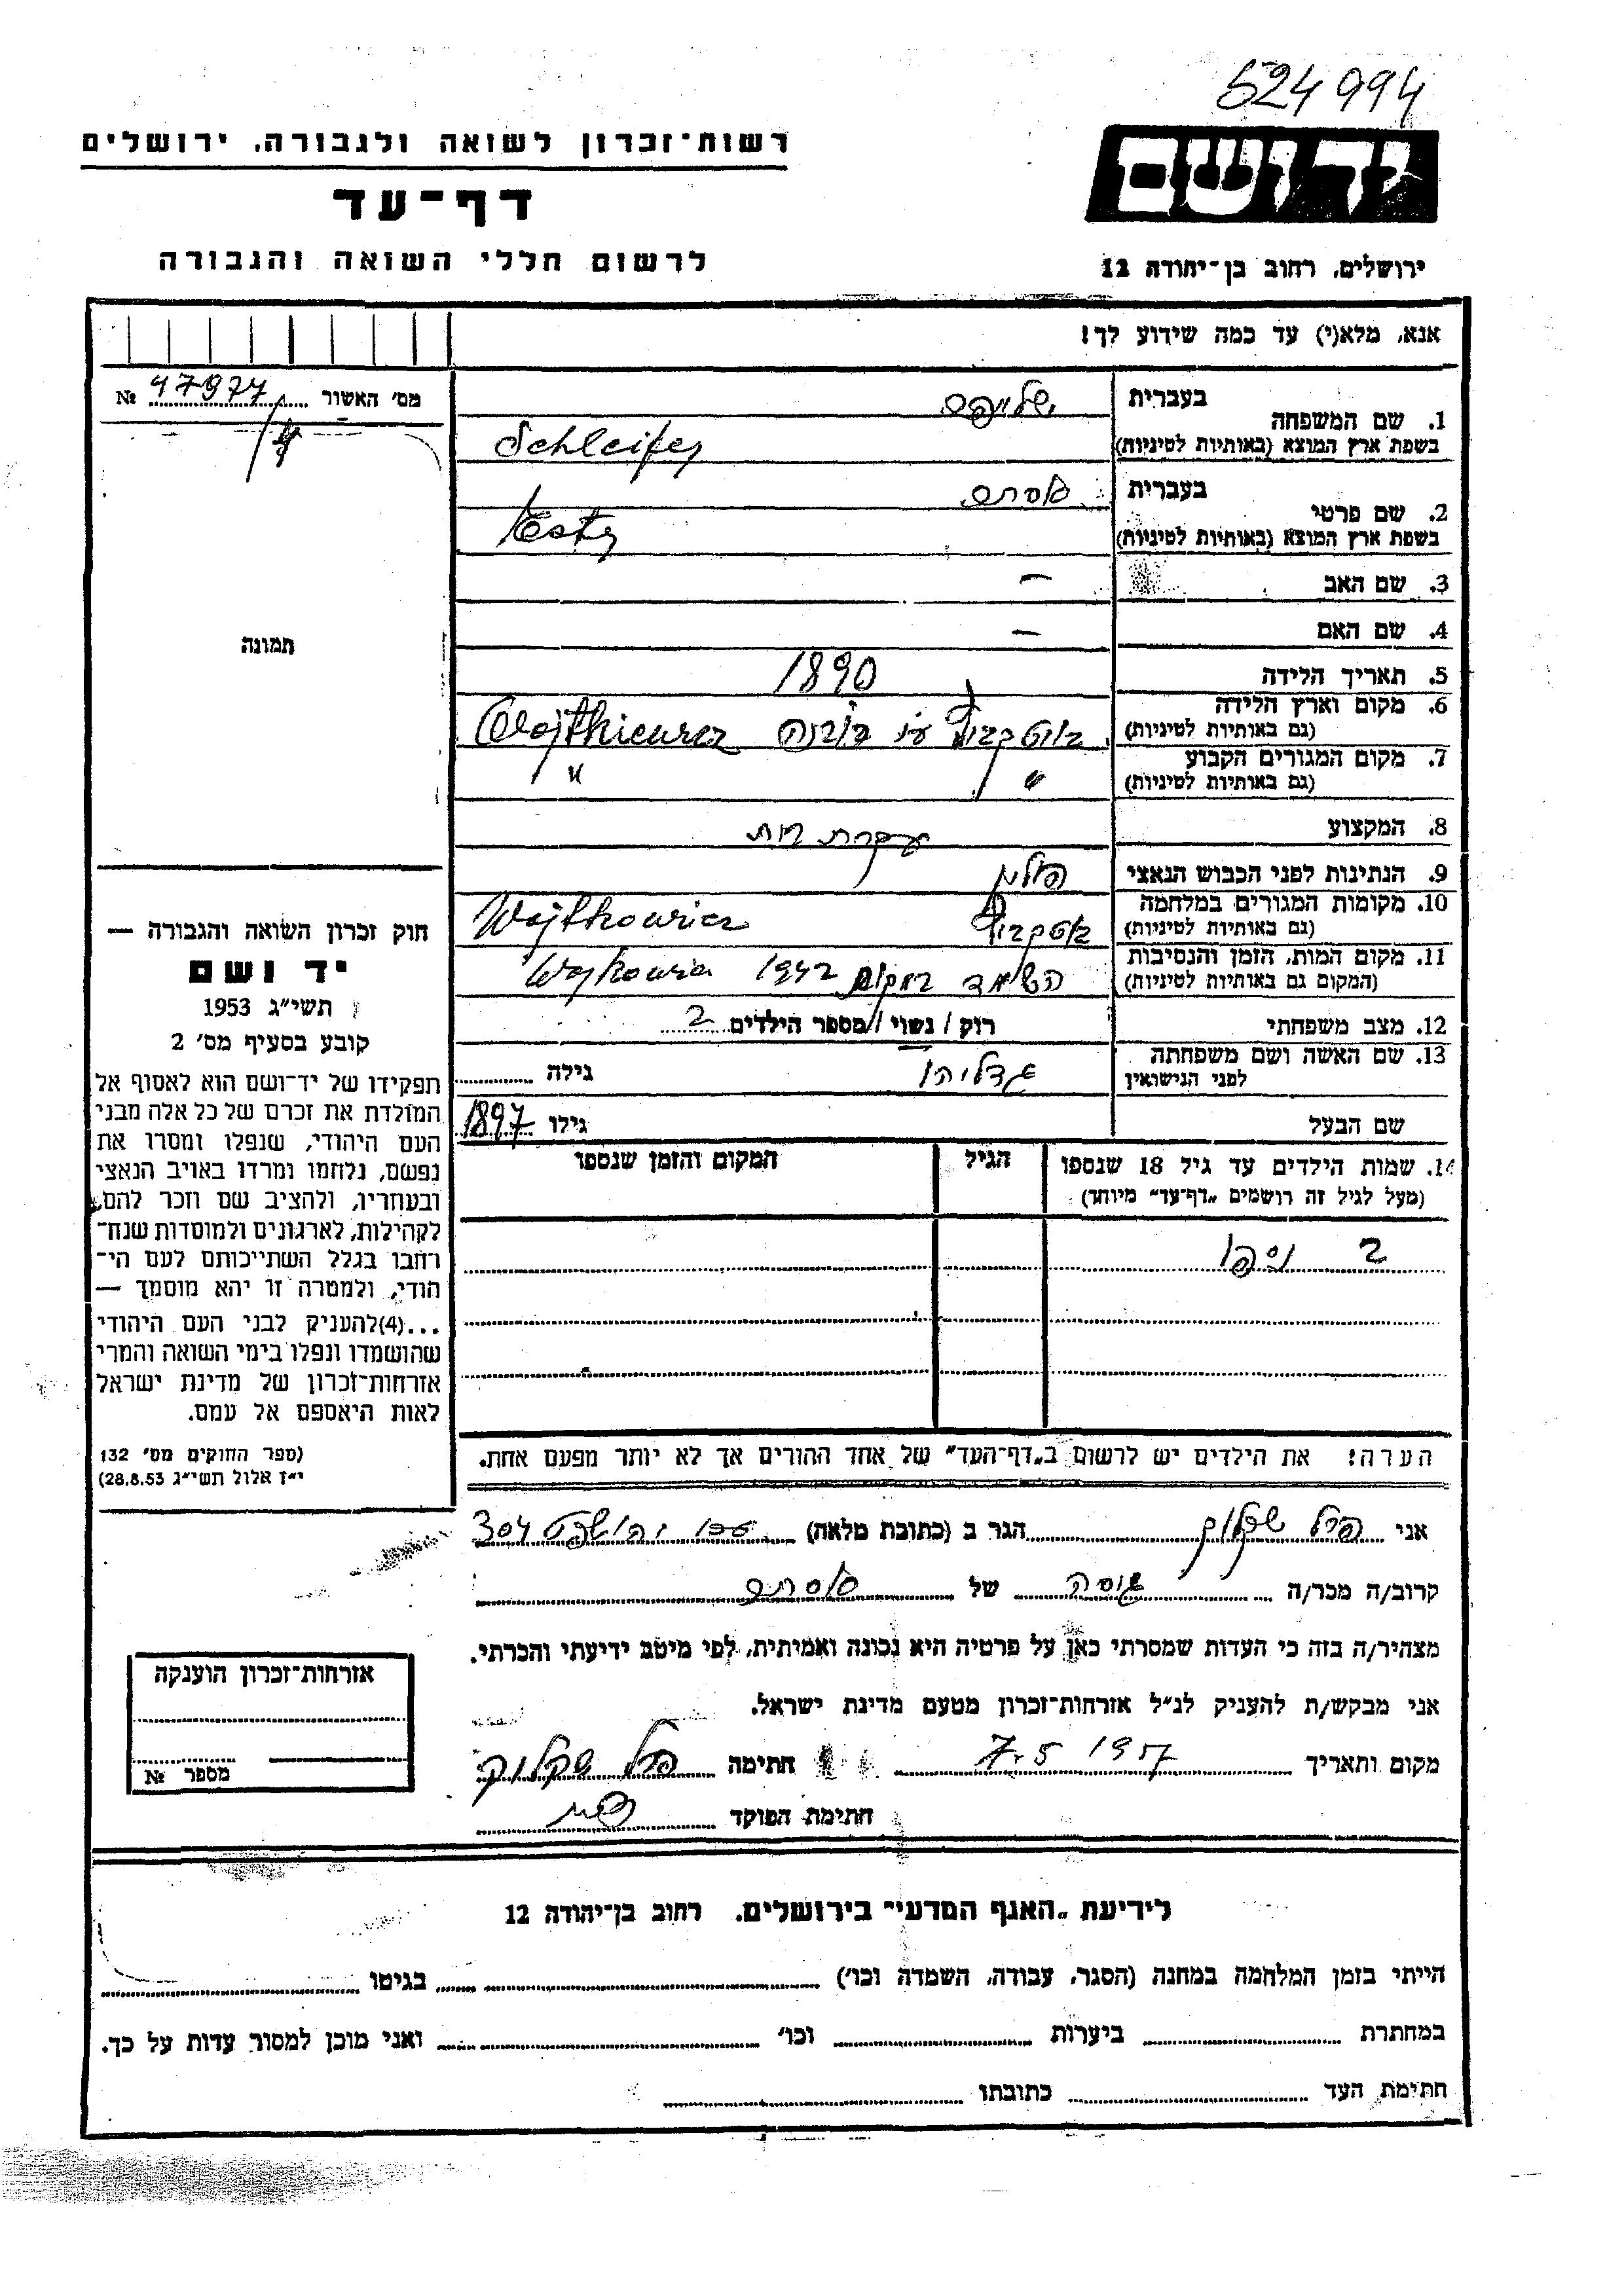 524994
רשות־זכרון לשואה ולגבורה, ירושלים
דף־עד
לרשום חללי השואה והגבורה
יד ושם
ירושלים, רחוב בן־יהודה 12
אנא, מלא(י) עד כמה שידוע לך!
מס׳ האשור № 47974
תמונה
1. שם המשפחה
בעברית
בשפת ארץ המוצא (באותיות לטיניות) Schleifer
2. שם פרטי
בעברית אסתר
בשפת ארץ המוצא (באותיות לטיניות) Ester
3. שם האב –
4. שם האם –
5. תאריך הלידה 1890
6. מקום וארץ הלידה
(גם באותיות לטיניות)
7. מקום המגורים הקבוע
(גם באותיות לטיניות) " "
8. המקצוע עקרת בית
9. הנתינות לפני הכבוש הנאצי פולין
10. מקומות המגורים במלחמה
(גם באותיות לטיניות)
11. מקום המות, הזמן והנסיבות
(המקום גם באותיות לטיניות) במקום 1942
12. מצב משפחתי רוק / נשוי / מספר הילדים 2
13. שם האשה ושם משפחתה
לפני הנישואין גילה
גדליהו
שם הבעל גילו 1897
14. שמות הילדים עד גיל 18 שנספו
(מעל לגיל זה רושמים „דף־עד״ מיוחד)
הגיל
המקום והזמן שנספו
2 ניספו
הערה! את הילדים יש לרשום ב„דף־העד״ של אחד ההורים אך לא יותר מפעם אחת.
חוק זכרון השואה והגבורה —
יד ושם
תשי״ג 1953
קובע בסעיף מס׳ 2
תפקידו של יד־ושם הוא לאסוף אל
המולדת את זכרם של כל אלה מבני
העם היהודי, שנפלו ומסרו את
נפשם, נלחמו ומרדו באויב הנאצי
ובעוזריו, ולהציב שם וזכר להם,
לקהילות, לארגונים ולמוסדות שנח־
רבו בגלל השתייכותם לעם הי־
הודי, ולמטרה זו יהא מוסמך —
...(4)להעניק לבני העם היהודי
שהושמדו ונפלו בימי השואה והמרי
אזרחות־זכרון של מדינת ישראל
לאות היאספם אל עמם.
(ספר החוקים מס׳ 132
י״ז אלול תשי״ג 28.8.53)
אני הגר ב (כתובת מלאה) 304
קרוב/ה מכר/ה גיסה של אסתר
מצהיר/ה בזה כי העדות שמסרתי כאן על פרטיה היא נכונה ואמיתית, לפי מיטב ידיעתי והכרתי.
אני מבקש/ת להעניק לנ״ל אזרחות־זכרון מטעם מדינת ישראל.
מקום ותאריך 7.5 1957 חתימה
חתימת הפוקד
אזרחות־זכרון הוענקה
מספר №
לידיעת „האגף המדעי״ בירושלים, רחוב בן־יהודה 12
הייתי בזמן המלחמה במחנה (הסגר, עבודה, השמדה וכו׳) בגיטו
במחתרת ביערות וכו׳ ואני מוכן למסור עדות על כך.
חתימת העד כתובתו